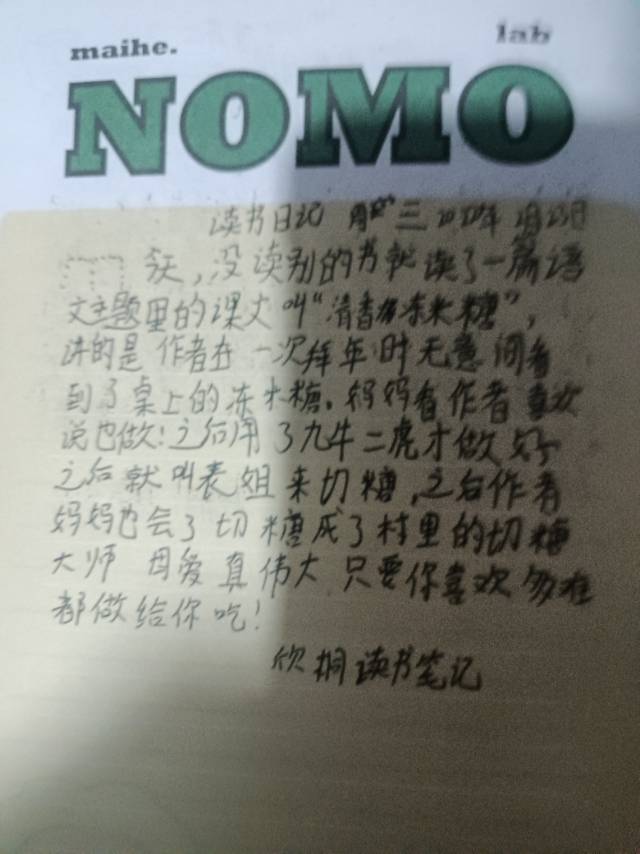 maihe. lab
NOMO
读书日记 三 月 日
今天,没读别的书就读了一篇语
文主题里的课文叫“清香的冻米糖”,
讲的是作者在一次拜年时无意间看
到了桌上的冻米糖。妈妈看作者喜欢
说也做!之后用了九牛二虎才做好
之后就叫表姐来切糖,之后作者
妈妈也会了切糖成了村里的切糖
大师 母爱真伟大 只要你喜欢多难
都做给你吃!
欣桐读书笔记